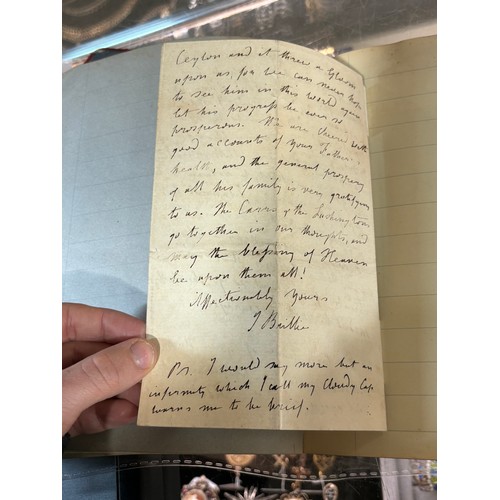 Ceylon and it threw a Gloom
upon us, for we can never hope
to see him in this world again
let his progress be ever so
prosperous. We are cheered with
good accounts of your Father's
health, and the general prosperity
of all his family is very gratifying
to us. The Carrs & the Lushingtons
go together in our thoughts, and
may the blessing of Heaven
be upon them all!
Affectionately yours
J
Ps. I would say more but an
infirmity which I call my Cloudy Cap
warns me to be brief.